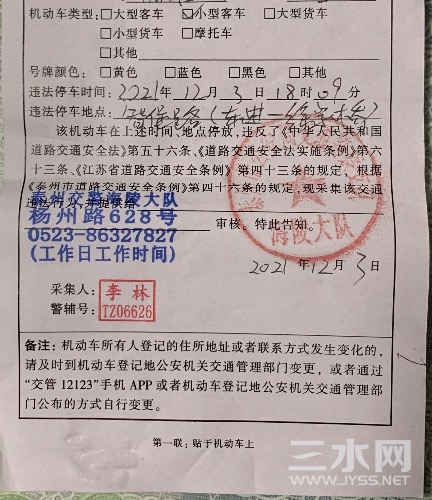 机动车类型：□大型客车 ☑小型客车 □大型货车
□小型货车 □摩托车
□其他
号牌颜色：□黄色 □蓝色 □黑色 □其他
违法停车时间：2021年12月3日18时09分
违法停车地点：
该机动车在上述时间、地点停放，违反了《中华人民共和国
道路交通安全法》第五十六条、《道路交通安全法实施条例》第六
十三条、《江苏省道路交通安全条例》第四十三条的规定，根据
《泰州市道路交通安全条例》第四十六条的规定，现采集该交通
违法行为，并提供给
审核。特此告知。
泰州交警海陵大队
杨州路628号
0523-86327827
(工作日工作时间)
海陵大队
2021年12月3日
采集人：李林
警辅号：TZ06626
备注：机动车所有人登记的住所地址或者联系方式发生变化的，
请及时到机动车登记地公安机关交通管理部门变更，或者通过
“交管 12123”手机 APP 或者机动车登记地公安机关交通管理部
门公布的方式自行变更。
第一联：贴于机动车上
三水网
WWW.JYSS.NET